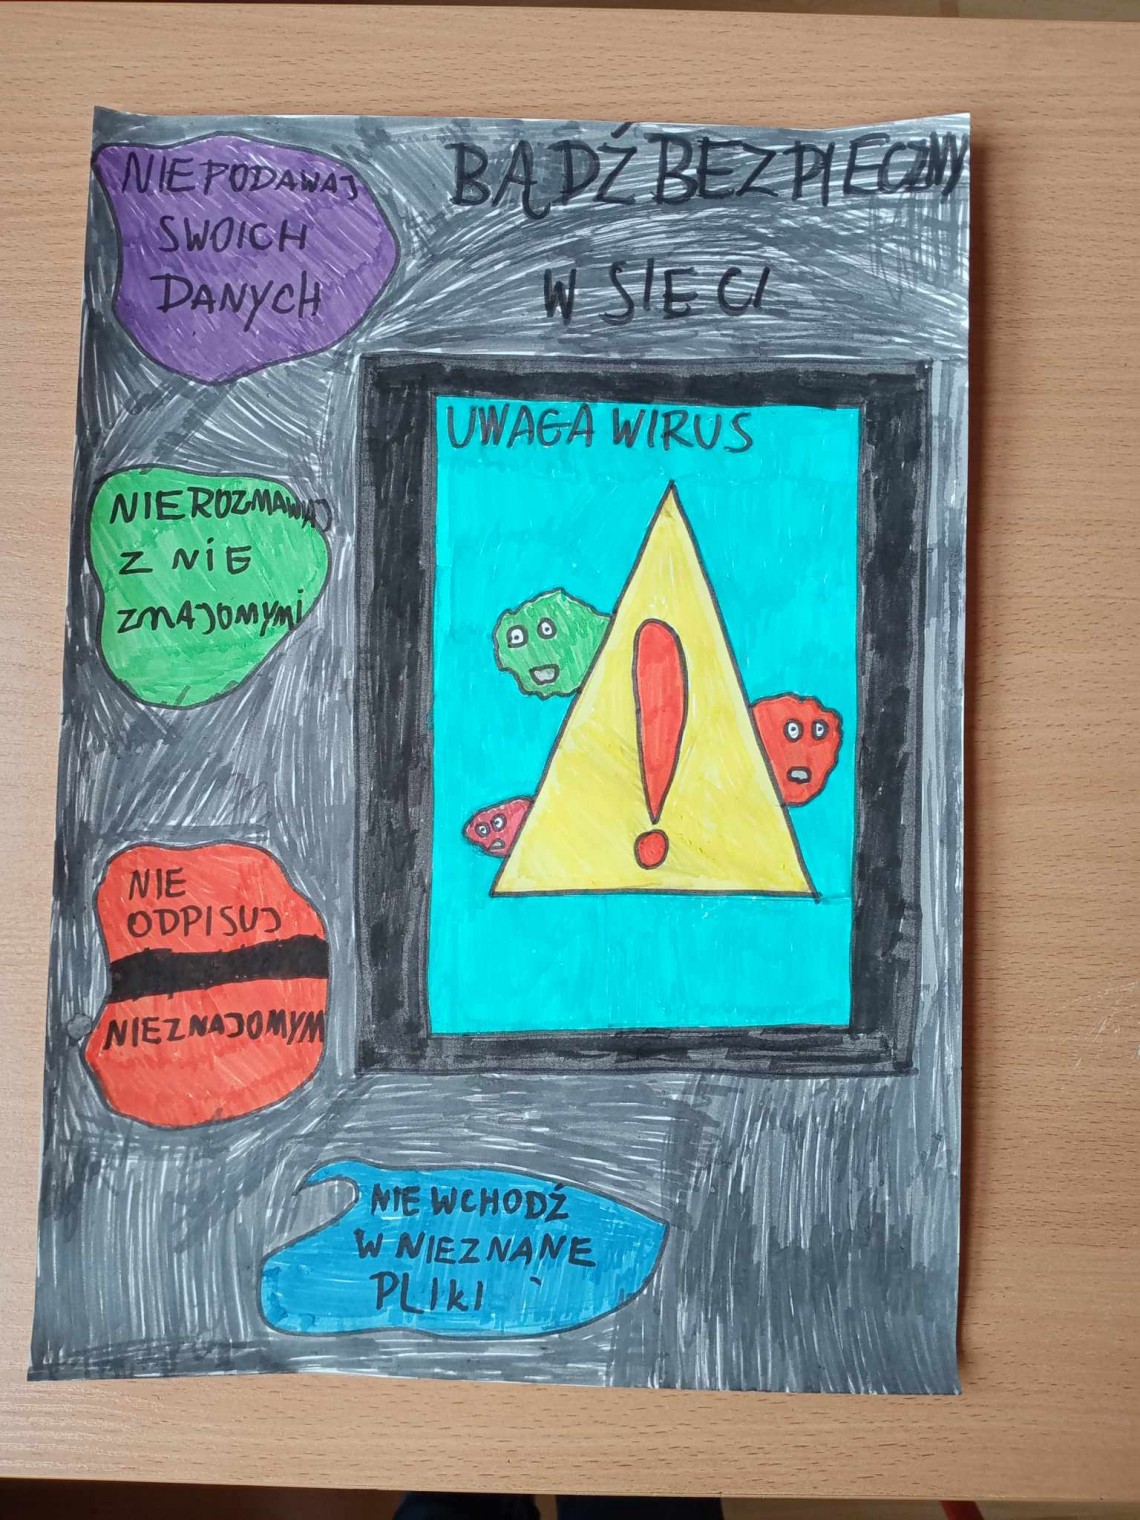 BĄDŹ BEZPIECZNY
W SIECI
NIE PODAWAJ
SWOICH
DANYCH
UWAGA WIRUS
NIEROZMAWIAJ
Z NIE
ZNAJOMYMI
NIE
ODPISUJ
NIEZNAJOMYM
NIE WCHODŹ
W NIEZNANE
PLIKI